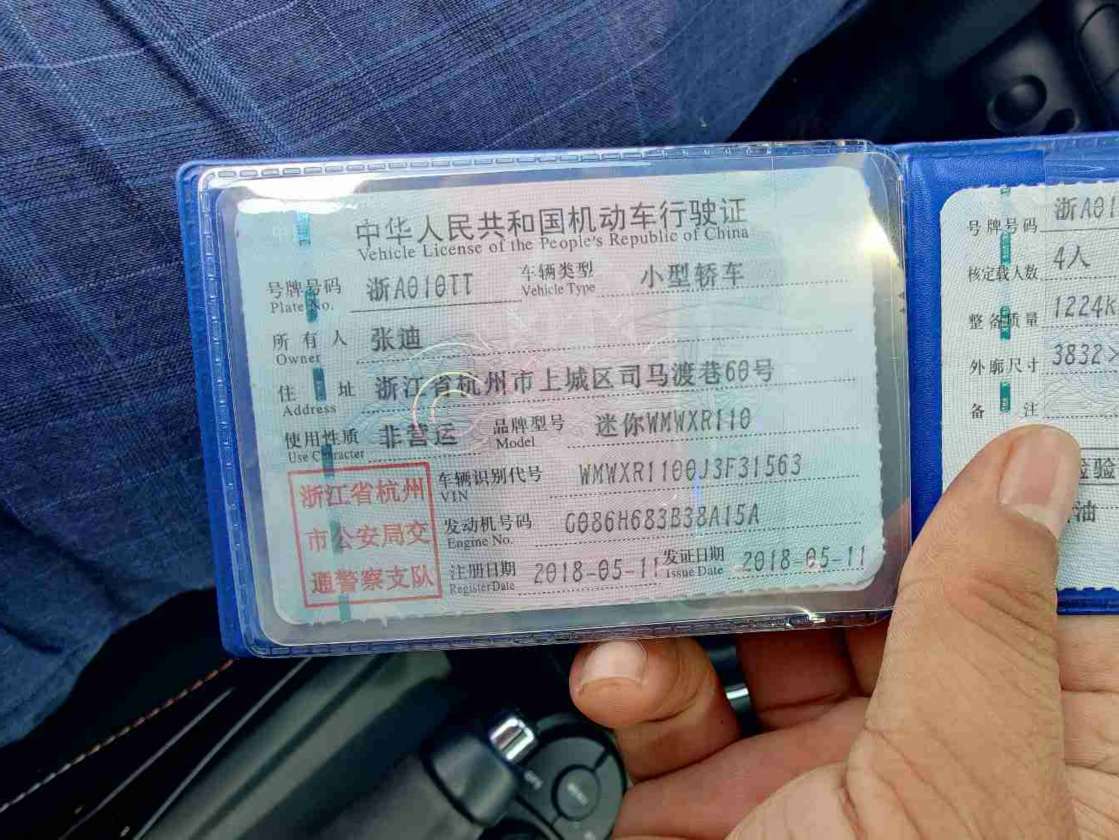 中华人民共和国机动车行驶证
Vehicle License of the People's Republic of China
号牌号码 浙A010TT 车辆类型 小型轿车
Plate No. Vehicle Type
所有人 张迪
Owner
住址 浙江省杭州市上城区司马渡巷60号
Address
使用性质 非营运 品牌型号 迷你WMWXR110
Use Character Model
浙江省杭州
市公安局交
通警察支队
车辆识别代号 WMWXR1100J3F31563
VIN
发动机号码 G086H683B38A15A
Engine No.
注册日期 2018-05-11 发证日期 2018-05-11
Register Date Issue Date
号牌号码 浙A01
核定载人数 4人
整备质量 1224K
外廓尺寸 3832
备注
检验
油